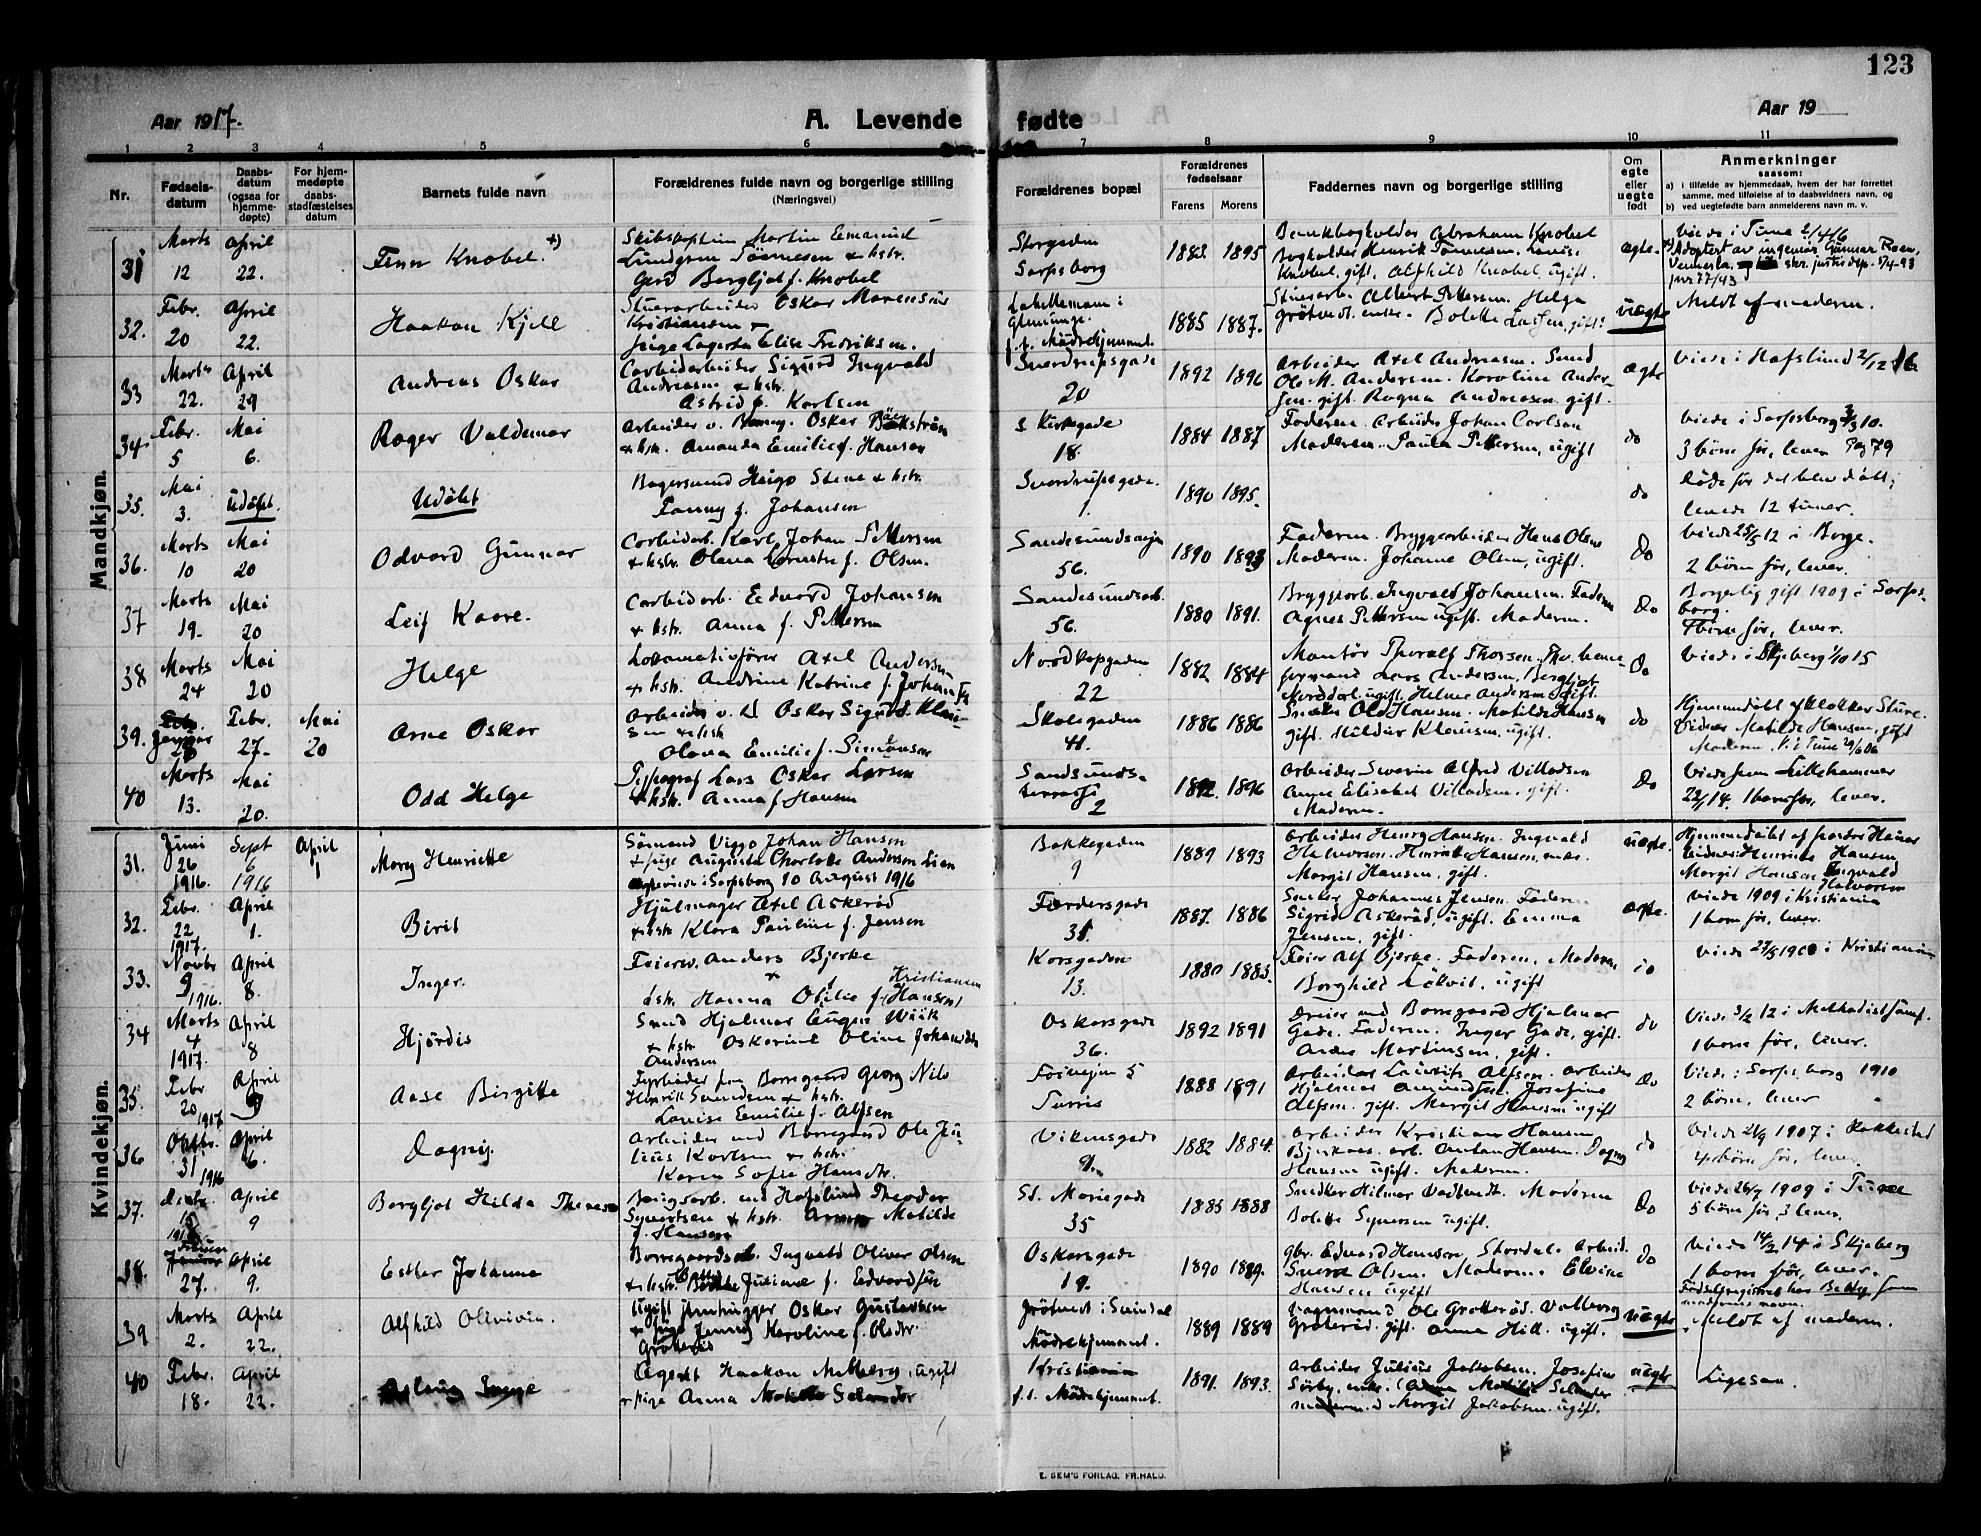 123
Aar 1917.
A. Levende fødte
Aar 19
1 2 3 4 5 6 7 8 9 10 11
Nr.
Fødsels-
datum
Daabs-
datum
(ogsaa for
hjemme-
døpte)
For hjem-
medøpte
daabs-
stadfæstelses
datum
Barnets fulde navn
Forældrenes fulde navn og borgerlige stilling
(Næringsvei)
Forældrenes bopæl
Forældrenes
fødselsaar
Farens Morens
Faddernes navn og borgerlige stilling
Om
egte
eller
uegte
født
Anmerkninger
saasom:
a) i tilfælde av hjemmedaab, hvem der har forrettet
samme, med tilføielse af to daabsvidners navn, og
b) ved uegtefødte barn anmelderens navn m. v.
Mandkjøn.
31 Marts 12 April 22.
Finn Knobel. x)
Skibskaptein Martin Emanuel
Lundgren Tönnesen & hstr.
Gerd Bergljot f. Knobel
Storgaden
Sarpsborg
1883. 1895
Bankbogholder Abraham Knobel
Bogholder Henrik Tönnesen. Louise
Knobel, gift. Alfhild Knobel, ugift.
ægte.
Viede i Tune
x) Adoptert av ingeniør Gunnar Roen,
Vennesla.
32. Febr. 20 April 22.
Haakon Kjell
Stuerarbeider Oskar Marensius
Kristiansen &
pige Lagerta Elise Fredriksen.
f. t. Mödrehjemmet.
1885 1887.
Stuerarb. Albert Pettersen. Helga
Grötvedt. enke. Bolette Larsen, gift.
uægte
Meldt af moderen.
33 Marts 22. April 29
Andreas Oskar
Carbidarbeider Sigurd Ingvald
Andreasen & hstr.
Astrid f. Karlsen
Sverdrupsgade
20
1892 1896
Arbeider Axel Andreasen. Smed
Ole M. Andersen. Karoline Ander-
sen. gift. Ragna Andreasen. gift.
ægte
Viede i Hafslund 2/12 16
34. Febr. 5 Mai 6.
Roger Valdemar
Arbeider v. Borreg. Oskar Bäckström
& hstr. Amanda Emilie f. Hansen
S. Kirkegade
18.
1884 1887
Faderen. Arbeider Johan Carlson
Moderen. Paula Pettersen, ugift
do
Viede i Sarpsborg 3/3 10.
3 börn för, lever Pag 79
35. Mai 3. Udøbt.
Udøbt
Bagersvend Heigo Stene & hstr.
Fanny f. Johansen
Sverdrupsgade.
1.
1890 1895.
do
Døde før det blev döbt;
levede 12 timer.
36. Marts 10 Mai 20
Odvard Gunnar
Carbidarb. Karl Johan Pettersen
& hstr. Olena Loventse f. Olsen.
Sandesundsveien
56.
1890 1893
Faderen. Bryggearbeider Hans Olsen
Moderen. Johanne Olsen, ugift.
Do
Viede 25/5 12 i Borge.
2 börn för, lever.
37 Marts 19. Mai 20
Leif Kaare.
Carbidarb. Edvard Johansen
& hstr. Anna f. Pettersen
Sandesundsv.
56.
1880 1891.
Bryggearb. Ingvald Johansen. Faderen
Agnes Pettersen ugift. Moderen.
Do
Borgerlig gift 1909 i Sarps-
borg.
4 börn för, lever.
38 Marts 24 Mai 20
Helge
Lokomotivfører Axel Andersen
& hstr. Andrine Katrine f. Johansen
Nordkapgaden
22
1882 1884
Montör Thoralf Thorsen.
formand Lars Andersen. Bergljot
Norddal. ugift. Helene Andersen gift.
Do
Viede i Skjeberg 1/10 15
39. Januar Febr. 27. Mai 20
Arne Oskar
Arbeider v. Oskar Sigurd Klau-
sen & hstr
Olava Emilie f. Simonsen
Skolegaden
41.
1886 1886
Snekker Ole Hansen. Matilde Hansen
gift. Hildur Klausen. ugift.
do
Hjemmedøbt af klokker Sture.
Vidner Matilde Hansen, gift
Moderen V. i Tune
40 Marts 13. Mai 20.
Odd Helge
Typograf Lars Oskar Larsen
& hstr. Anna f. Hansen
Sandsunds-
terrasse
2
1892. 1896
Arbeider Severin Alfred Villadsen
Anne Elisabet Villadsen. gift.
Moderen.
Do
Viede paa Lillehammer
22/1 14. 1 barn før, lever.
Kvindekjøn.
31. Juni 26 1916. Sept 6 1916 April 1
Mary Henriette
Sömand Viggo Johan Hansen
& pige Augusta Charlotte Andersen Lien
viede i Sarpsborg 10 August 1916
Bakkegaden
9
1889 1893
Arbeider Henry Hansen. Ingvald
Halvorsen. Henriette Hansen, enke.
Margit Hansen, gift.
uægte.
Hjemmedøbt af pastor Hauer
Vidner: Henriette Hansen
Margit Hansen Ingvald
Halvorsen
32. Febr. 22 1917. April 1.
Birit
Hjulmager Axel Askeröd
& hstr Klara Pauline f. Jensen
Færdersgade
31.
1887. 1886
Smeker Johannes Jensen. Faderen
Sigrid Askeröd, ugift. Emma
Jensen, gift.
ægte.
Viede 1909 i Kristiania
1 barn för, lever.
33. Novbr 9 1916. April 8.
Inger.
Feierm. Anders Bjerke
&
hstr. Hanna Otilie f. Hansen Kristiansen
Korsgaden
13.
1880 1883.
Feier Alf Bjerke. Faderen. Moderen
Borghild Lökvit, ugift
do
Viede i Kristiania
34 Marts 4 1917. April 8
Hjördis
Smed Hjalmar Eugen Wiik
& hstr. Oskarine Oline Johannesen
Andersen
Oskarsgade
36.
1892 1891
Dreier ved Borregaard Hjalmar
Gade. Faderen. Inger Gade, gift.
Andre Martinsen, gift.
do
Viede 3/2 12 i Methodistsamf.
1 barn för, lever.
35. Febr 20 1917 April
Aase Birgitte
Fyrböder paa Borregaard Georg Nils
Henrik Svendsen & hstr.
Louise Emilie f. Alfsen
1888 1891
Arbeider Lauritz Alfsen. Arbeider
Hjalmar Amundsen. Josefine
Alfsen. gift. Margit Hansen ugift
Do
Viede i Sarpsborg 1910
2 börn, lever
36 Oktbr. 31 1916 April 6.
Dagny.
Arbeider ved Borregaard Ole Ju-
lius Karlsen & hstr.
Karen Sofie Hansdtr.
Vikensgade
9.
1882 1884.
Arbeider Kristian Hansen
arb. Anton Hansen. Dagny
Hansen ugift. Moderen.
do
Viede 21/9 1907 i Rakkestad
4 börn för, lever.
37. April 9
Bergljot Hilda Therese
Brugsarb. ved Hafslund Theodor
Syvertsen & hstr. Anna Matilde
f. Hansen
St. Mariegade
35
1885 1888
Snedker Hilmar Vedtvedt. Moderen
Bolette Syversen ugift.
Do
Viede 26/7 1909 i Tune
5 börn för, 3 lever.
38. Januar 27. April 9.
Esther Johanne
Borregaardsarb. Ingvald Oliver Olsen
& hstr. Juliane f. Edvardsen
Oskarsgade
19.
1890 1889.
gbr. Edvard Hansen, Stordal. Arbeid.
Sverre Olsen. Moderen. Elvine
Hansen ugift
do
Viede 14/2 14 i Skjeberg
1 barn för, lever.
Födselsregistret har Betty som
moderens navn.
39 Marts 2. April 22.
Alfhild Olivivia.
Ugift Stenhugger Oskar Gustavsen
& pige Jenny Karoline f. Olsdtr
Grötteröd
Grötvedt i Svindal
Mödrehjemmet.
1889 1889
Vognmand Ole Grötteröd. Valborg
Gröteröd. gift. Anna Hill. ugift.
uægte
Meldt af moderen.
40 Febr. 18. April 22.
Aslaug Inger
Agent Haakon Melberg, ugift
& pige Anna Matilde Selander
Kristiania
f. t. Mödrehjemmet.
1891. 1893.
Arbeider Julius Jakobsen. Josefine
Sörby, enke. Anna Matilde Selander
moderen. Margit Jakobsen. ugift.
uægte
Ligesaa.
E. SEM'S FORLAG, FR.HALD.